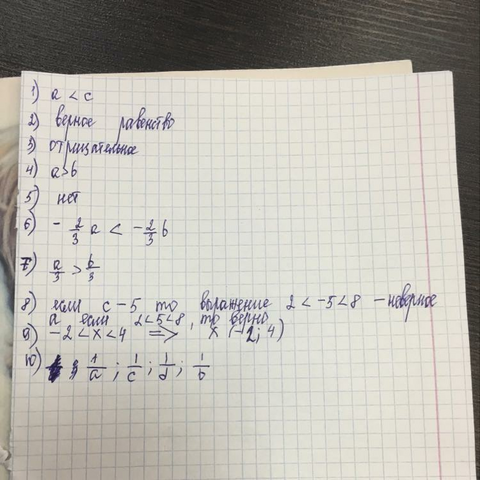 1) a < c
2) верное равенство
3) отрицательное
4) a>b
5) нет
6) - 2/3 a < - 2/3 b
7) a/3 > b/3
8) если c - 5 то выражение 2 < -5 < 8 - неверное
а если 2<5<8, то верно
9) -2 < x < 4 => x (-2; 4)
10) 1/a ; 1/c ; 1/d ; 1/b